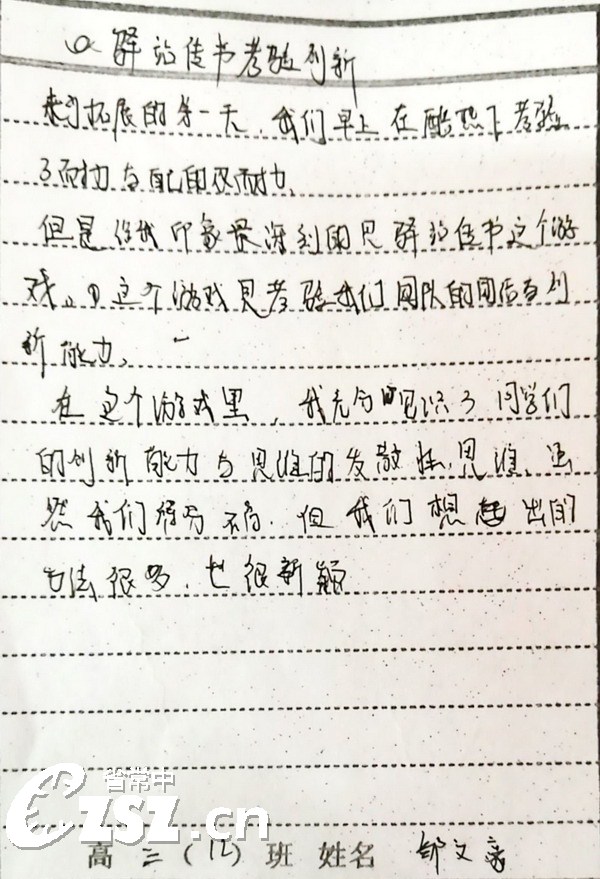 驿站传书考验创新
来到拓展的第一天，我们早上在酷热下考验
了耐力与自己的忍耐力、
但是给我印象最深刻的是驿站传书这个游
戏。这个游戏是考验我们团队的团结与创
新能力、
在这个游戏里，我充分见识了同学们
的创新能力与思维的发散性思维、虽
然我们得分不高，但我们想出的
方法很多，也很新颖
省常中
CZSZ.cn
高三(12)班 姓名 邹文